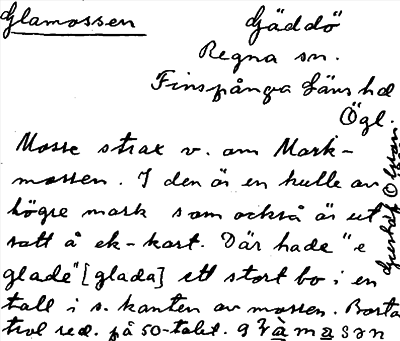 Glamossen
Gäddö
Regna sn.
Finspånga läns hd
Ögl.
Mosse strax v. om Mark-
mossen. I den är en kulle av
högre mark som också är ut
satt å ek-kart. Där hade "e
glade" [glada] ett stort bo i en
tall i s. kanten av mossen. Borta
trol red. på 50-talet.
Gunhild Olsson